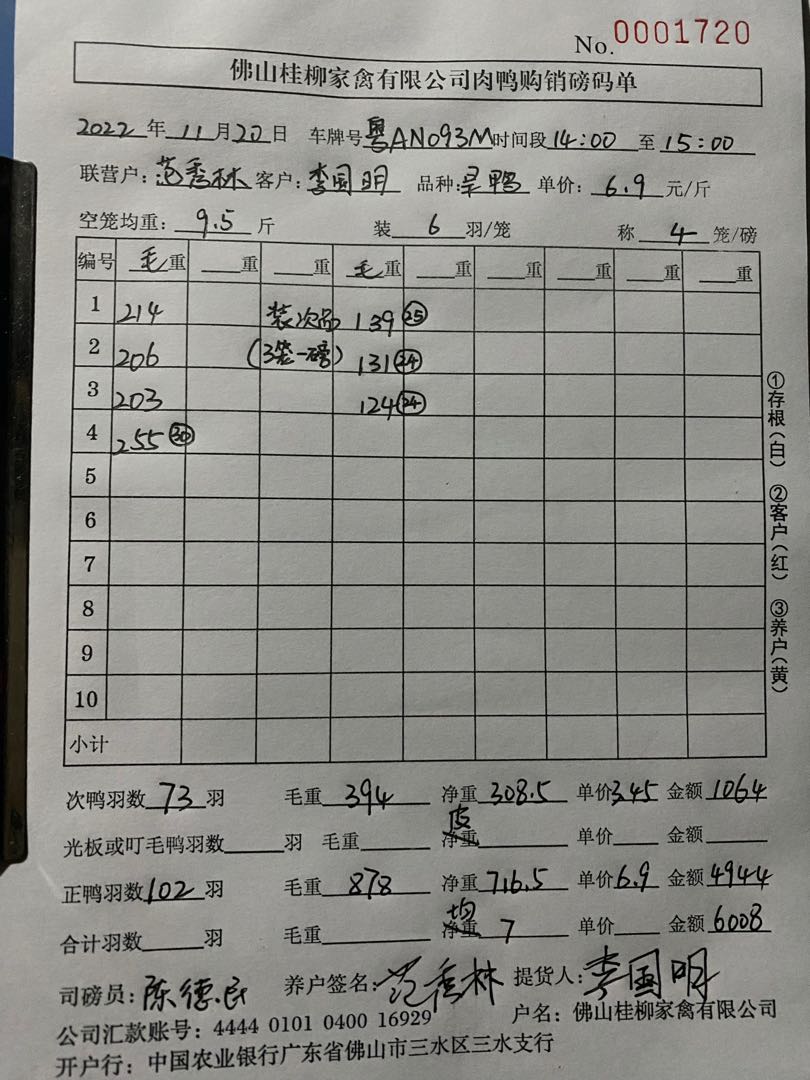 No. 0001720
佛山桂柳家禽有限公司肉鸭购销磅码单
2022 年 11 月 20 日 车牌号 粤AN093M 时间段 14:00 至 15:00
联营户: 范秀林 客户: 李国明 品种: 呈鸭 单价: 6.9 元/斤
空笼均重: 9.5 斤 装 6 羽/笼 称 4 笼/磅
编号 毛重 重 重 毛重 重 重 重 重 重
1 214 装次品 139 ㉕
2 206 (3笼一磅) 131 ㉔
3 203 124 ㉔
4 255 ㉚
5
6
7
8
9
10
小计
①存根(白) ②客户(红) ③养户(黄)
次鸭羽数 73 羽 毛重 394 净重 308.5 单价 3.45 金额 1064
皮
光板或叮毛鸭羽数 羽 毛重 净重 单价 金额
正鸭羽数 102 羽 毛重 878 净重 716.5 单价 6.9 金额 4944
均
合计羽数 羽 毛重 净重 7 单价 金额 6008
司磅员: 陈德民 养户签名: 范秀林 提货人: 李国明
公司汇款账号: 4444 0101 0400 16929 户名: 佛山桂柳家禽有限公司
开户行: 中国农业银行广东省佛山市三水区三水支行